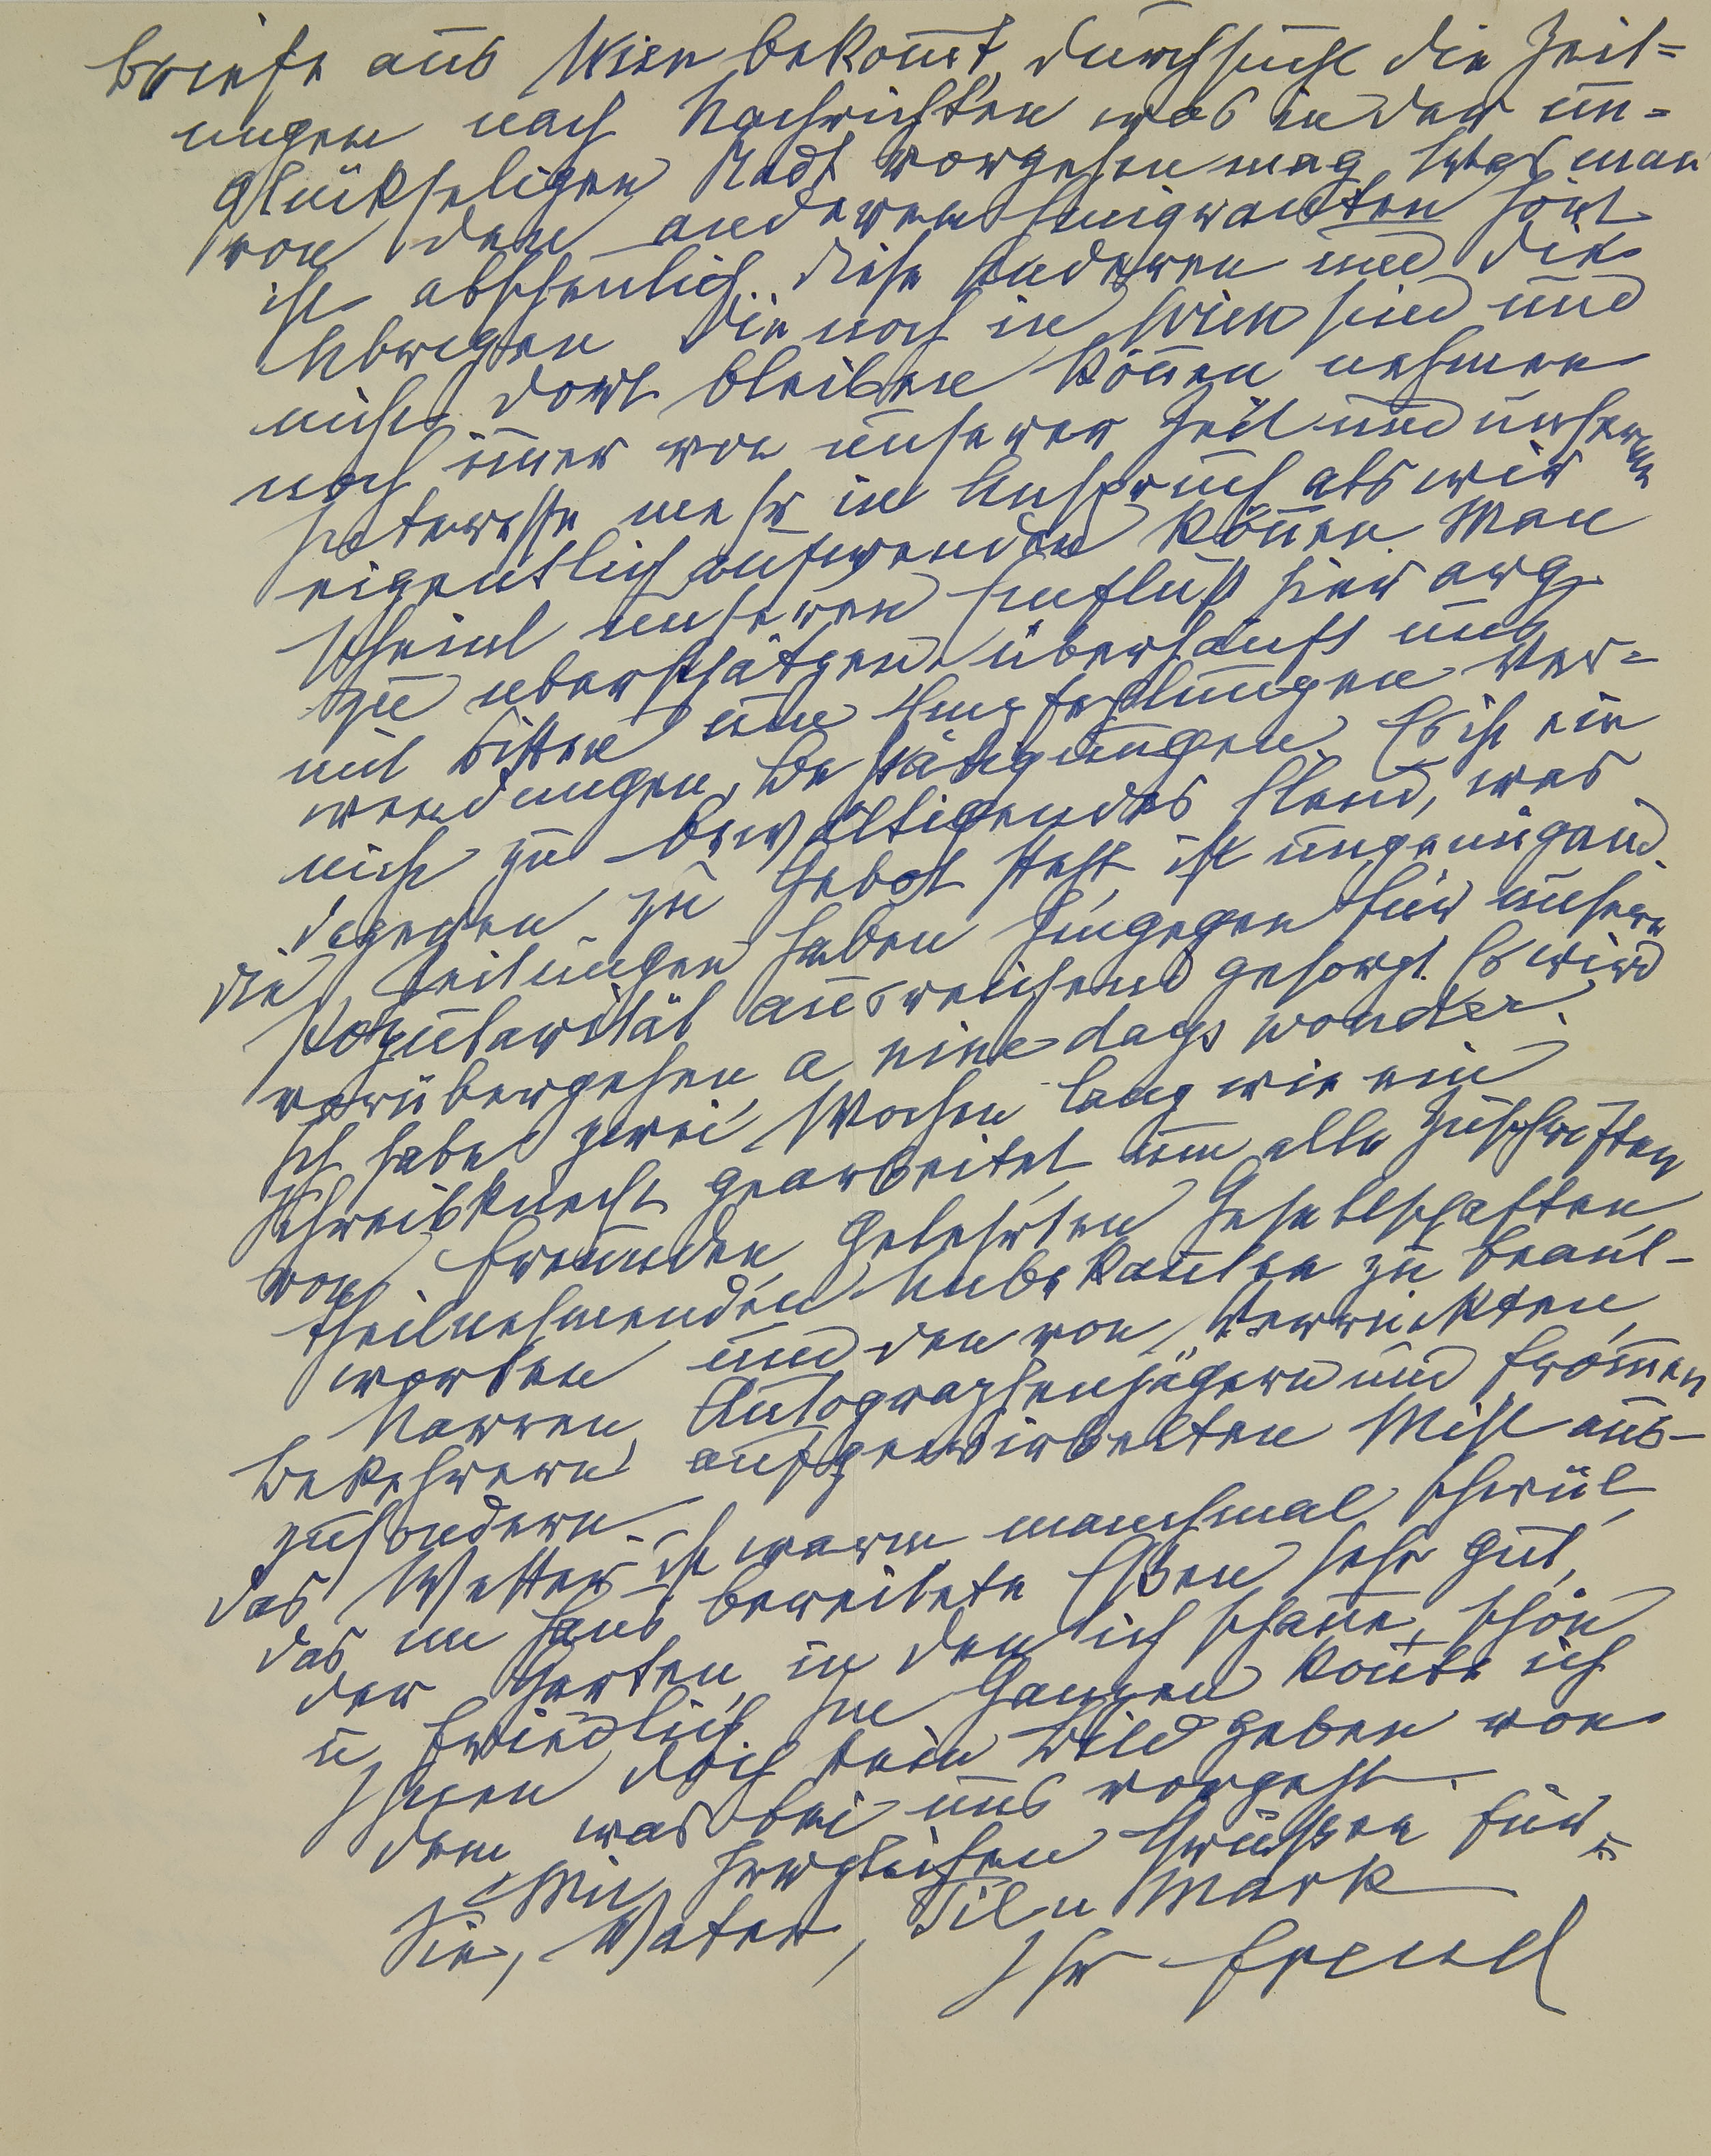 Briefe aus Wien bekom̅t, durchsucht die Zeit=
ungen nach Nachrichten was in der un=
glückseligen Stadt vorgehen mag. Was man
von den anderen Emigranten hört
ist abscheulich. Diese Anderen und die
Übrigen die noch in Wien sind und
nicht dort bleiben kön̅en nehmen
noch im̅er von unserer Zeit und unserem
Interesse mehr in Anspruch als wir
eigentlich aufwenden kön̅en. Man
scheint unseren Einfluß hier arg
zu überschätzen, überhäuft uns
mit Bitten um Empfehlungen Ver=
wendungen, Bestätigungen. Es ist ein
nicht zu bewältigendes Elend, was
dagegen zu Gebot steht ist ungenügend.
Die Zeitungen haben hingegen für unsere
Popularität ausreichend gesorgt. Es wird
vorübergehen, a nine days wonder.
Ich habe zwei Wochen lang wie ein
Schreibknecht gearbeitet um alle Zuschriften
von Freunden, Gelehrten Gesellschaften,
theilnehmenden Unbekan̅ten zu beant-
worten und den von Verrückten,
Narren, Autographenjägern und from̅en
Bekehrern aufgewirbelten Mist aus-
zusondern.
Das Wetter ist warm manchmal schwül,
das im Haus bereitete Eßen sehr gut,
der Garten, in den ich schaue, schön
u friedlich. Im Ganzen kon̅te ich
Ihnen doch kein Bild geben von
dem was bei uns vorgeht.
Mit herzlichen Grüßen für
Sie, Vater, Til u Mark
Ihr Freud